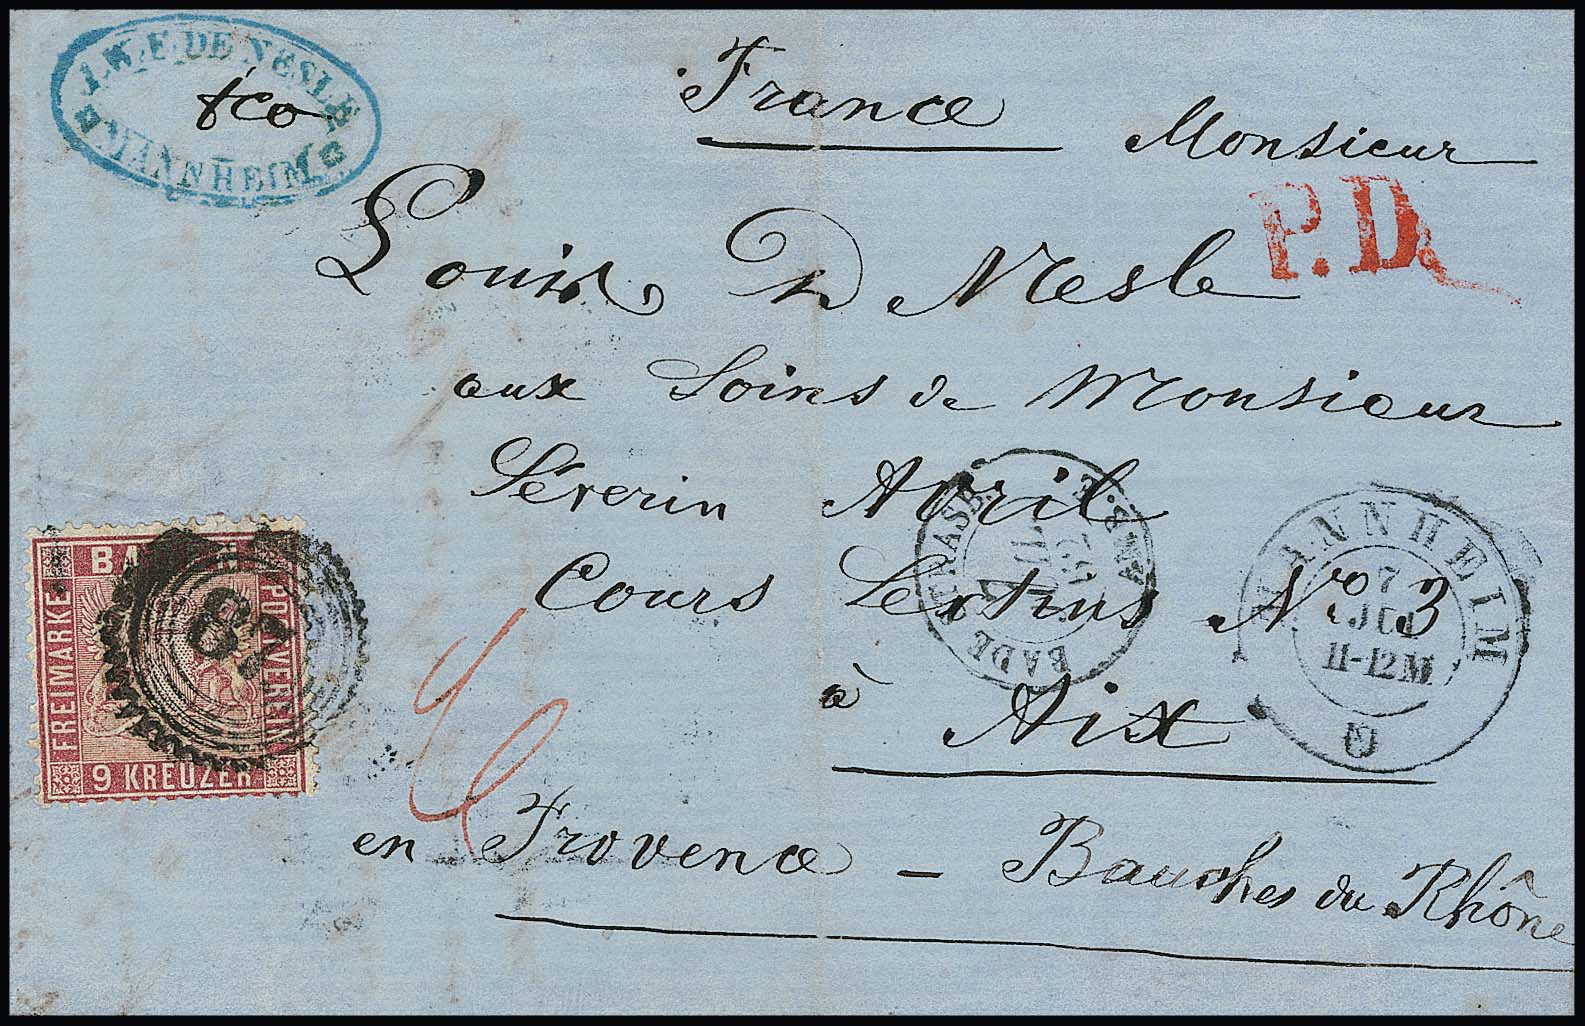 J.W.F. DE NESLE
MANNHEIM
fco
France
Monsieur
P.D.
Louis De Nesle
aux Soins de Monsieur
Séverin Avril
Cours Sextius No 3
à Aix
en Provence – Bauches du Rhône
BADE STRASB.
AMB. E
MANNHEIM
7
JUL
11-12M
BADEN
POSTVEREIN
FREIMARKE
9 KREUZER
87